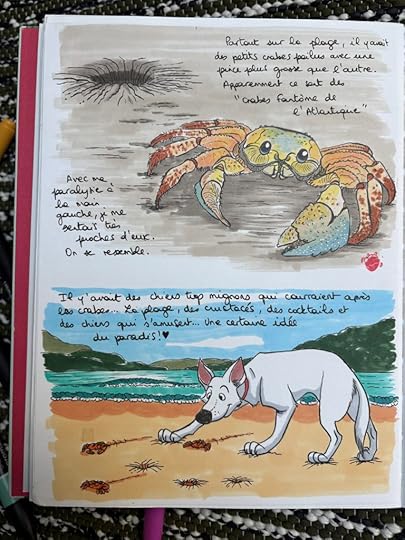 Partout sur la plage, il y avait
des petits crabes poilus avec une
pince plus grosse que l'autre.
Apparemment ce sont des
"crabes fantôme de
l'Atlantique"
Avec ma
paralysie à
la main
gauche, je me
sentais très
proches d'eux.
On se ressemble.
Il y avait des chiens trop mignons qui couraient après
les crabes... La plage, des crustacés, des cocktails et
des chiens qui s'amusent... Une certaine idée
du paradis! ♥